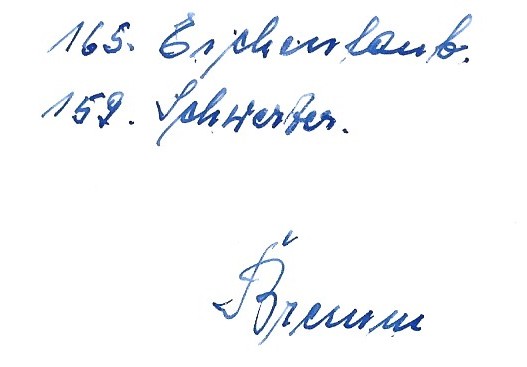 165. Eichenlaub.
159. Schwerter.
Bremm